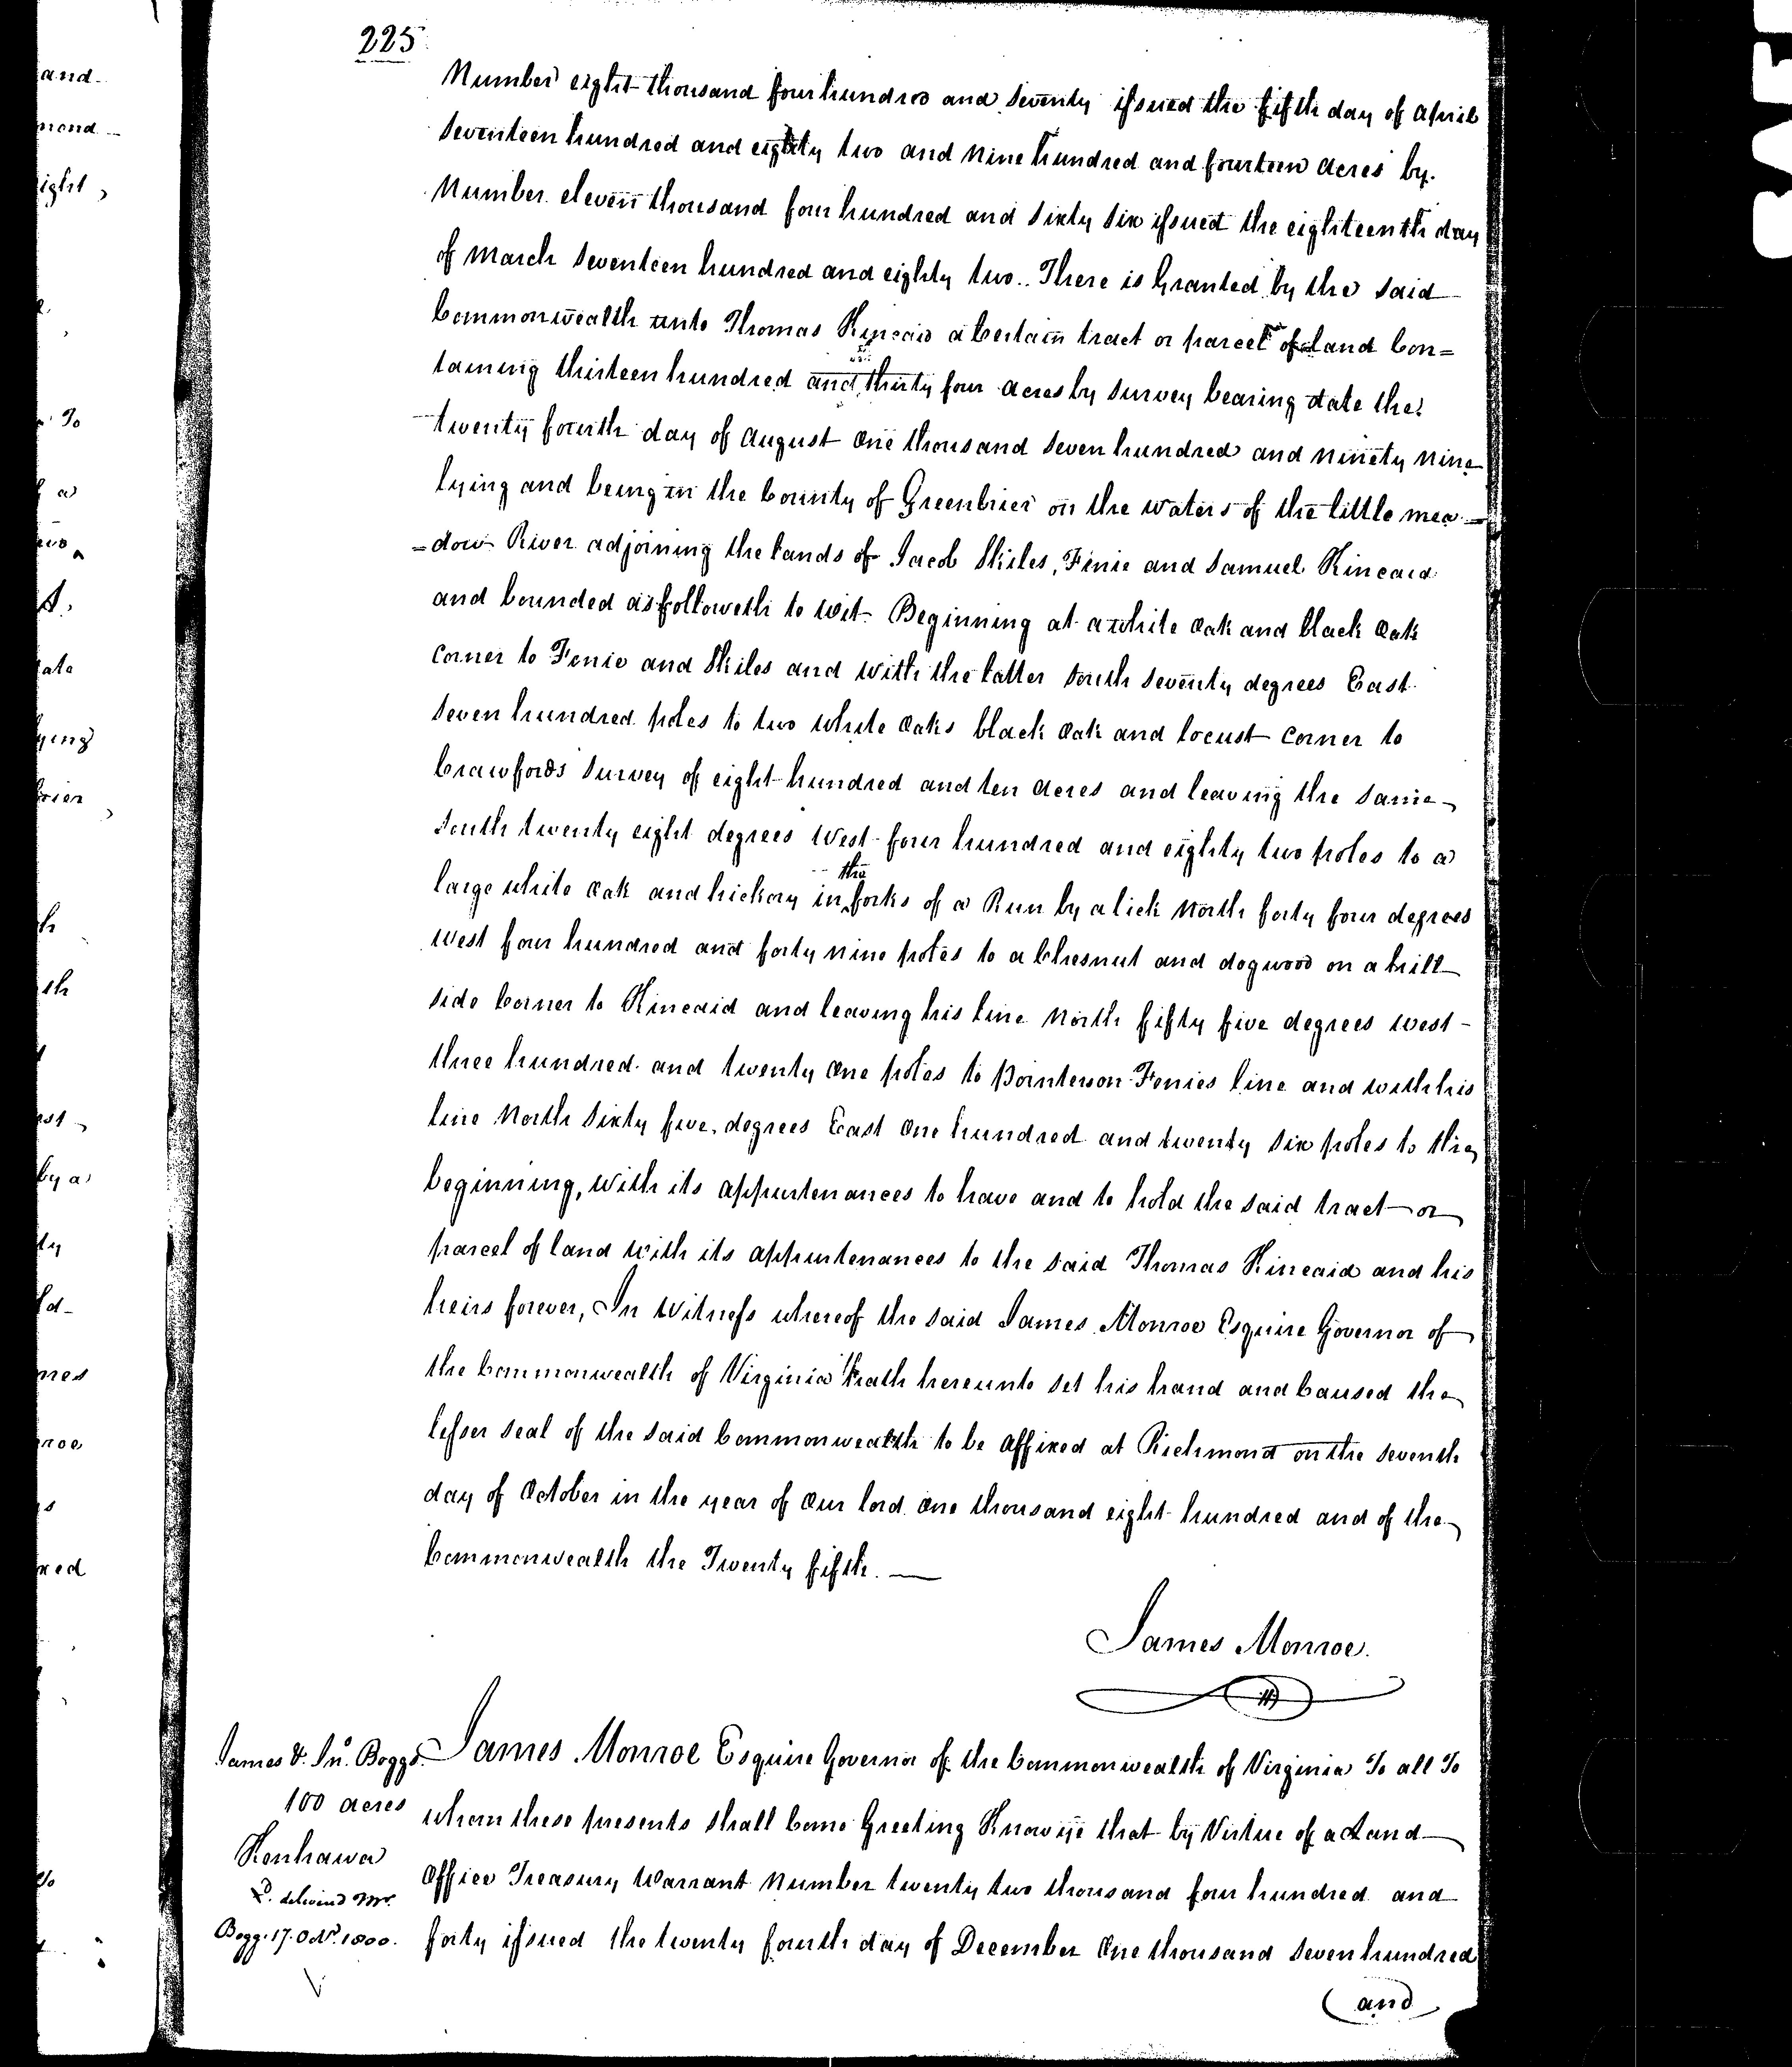 225
Number eight thousand four hundred and seventy issued the fifth day of April
seventeen hundred and eighty two and nine hundred and fourteen acres by
Number eleven thousand four hundred and sixty six issued the eighteenth day
of March seventeen hundred and eighty two.. There is Granted by the said
Commonwealth unto Thomas Kincaid a Certain tract or parcel of land Con=
taining thirteen hundred and thirty four acres by survey bearing date the
twenty fourth day of August one thousand seven hundred and ninety nine
lying and being in the County of Greenbrier on the waters of the little mea-
-dow River adjoining the lands of Jacob Skiles, Finie and Samuel Kincaid
and bounded as followeth to wit- Beginning at a white oak and black oak
corner to Fenie and Skiles and with the latter south seventy degrees East
seven hundred poles to two white oaks black oak and locust corner to
Crawfords survey of eight hundred and ten acres and leaving the same
south twenty eight degrees West four hundred and eighty two poles to a
large white oak and hickory in the forks of a Run by a lick North forty four degrees
West four hundred and forty nine poles to a Chesnut and dogwood on a hill
side Corner to Kincaid and leaving his line North fifty five degrees west-
three hundred and twenty one poles to pointerson Fenies line and with his
line North sixty five degrees East one hundred and twenty six poles to the
beginning, with its appurtenances to have and to hold the said tract or
parcel of land with its appurtenances to the said Thomas Kincaid and his
heirs forever, In Witness whereof the said James Monroe Esquire Governor of
the Commonwealth of Virginia hath hereunto set his hand and Caused the
lesser seal of the said Commonwealth to be affixed at Richmond on the seventh
day of October in the year of our lord one thousand eight hundred and of the
Commonwealth the Twenty fifth. —
James Monroe.
James & Jno. Boggs.
100 acres
Kenhawa
D. delivered Mr.
Bogg. 17. Octr. 1800.
James Monroe Esquire Governor of the Commonwealth of Virginia To all To
whom these presents shall Come Greeting Know ye that by Virtue of a Land
Office Treasury Warrant Number twenty two thousand four hundred and
forty issued the twenty fourth day of December one thousand seven hundred
(and